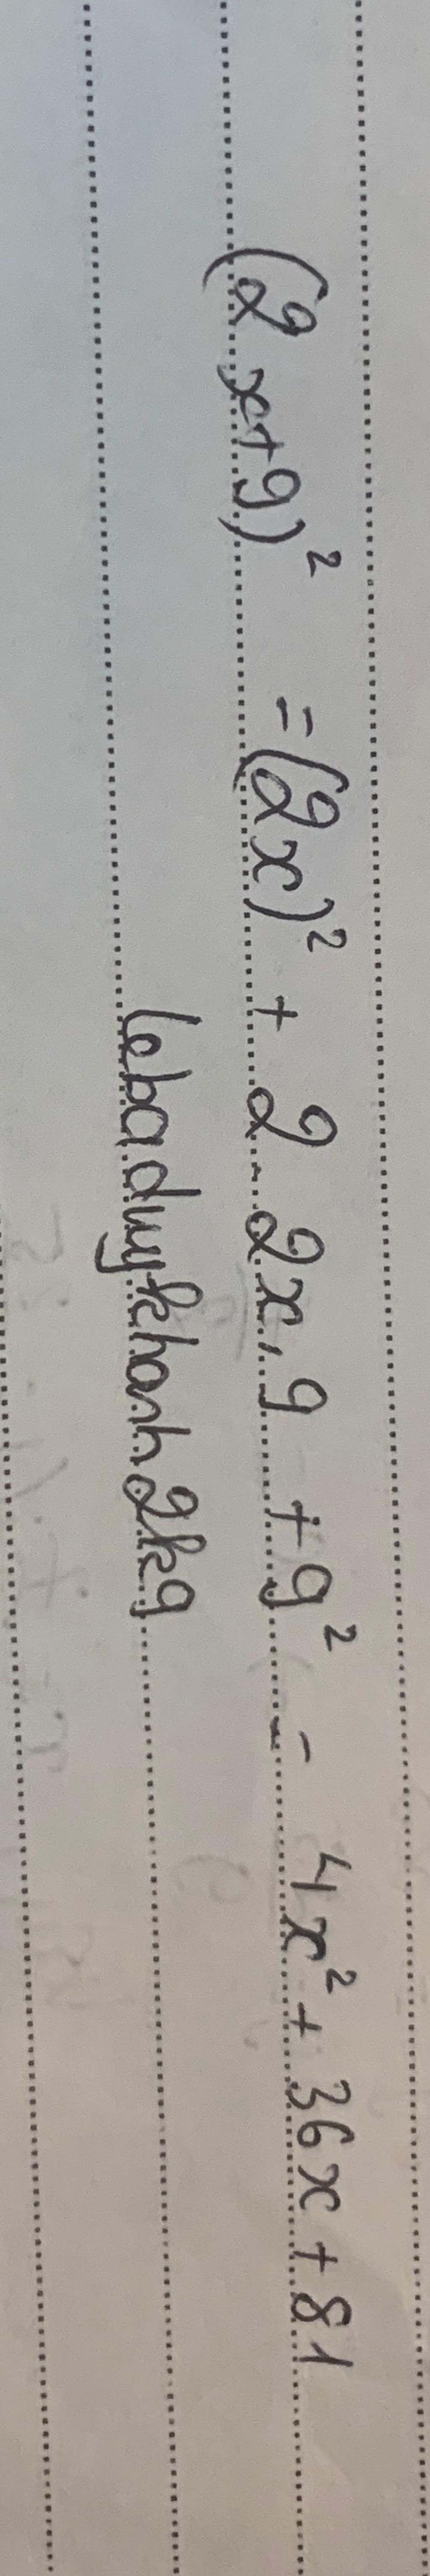 (2x+9)² = (2x)² + 2.2x.9 + 9² - 4x² + 36x + 81
lebaduykhanh2k9